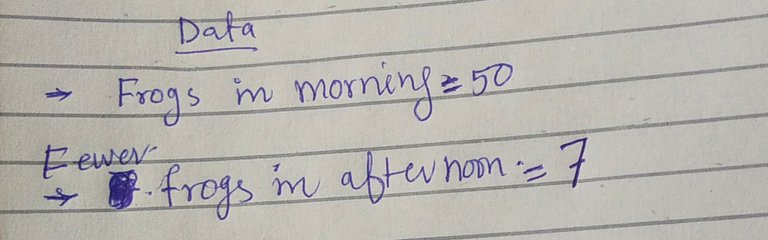 Data
→ Frogs in morning = 50
Fewer
→ frogs in afternoon = 7